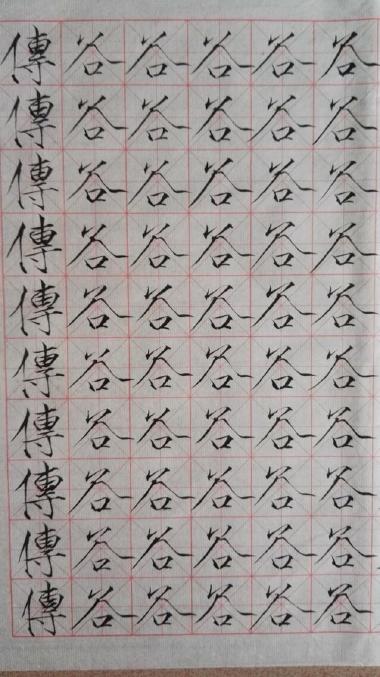 傳谷谷谷谷谷
傳谷谷谷谷谷
傳谷谷谷谷谷
傳谷谷谷谷谷
傳谷谷谷谷谷
傳谷谷谷谷谷
傳谷谷谷谷谷
傳谷谷谷谷谷
傳谷谷谷谷谷
傳谷谷谷谷谷